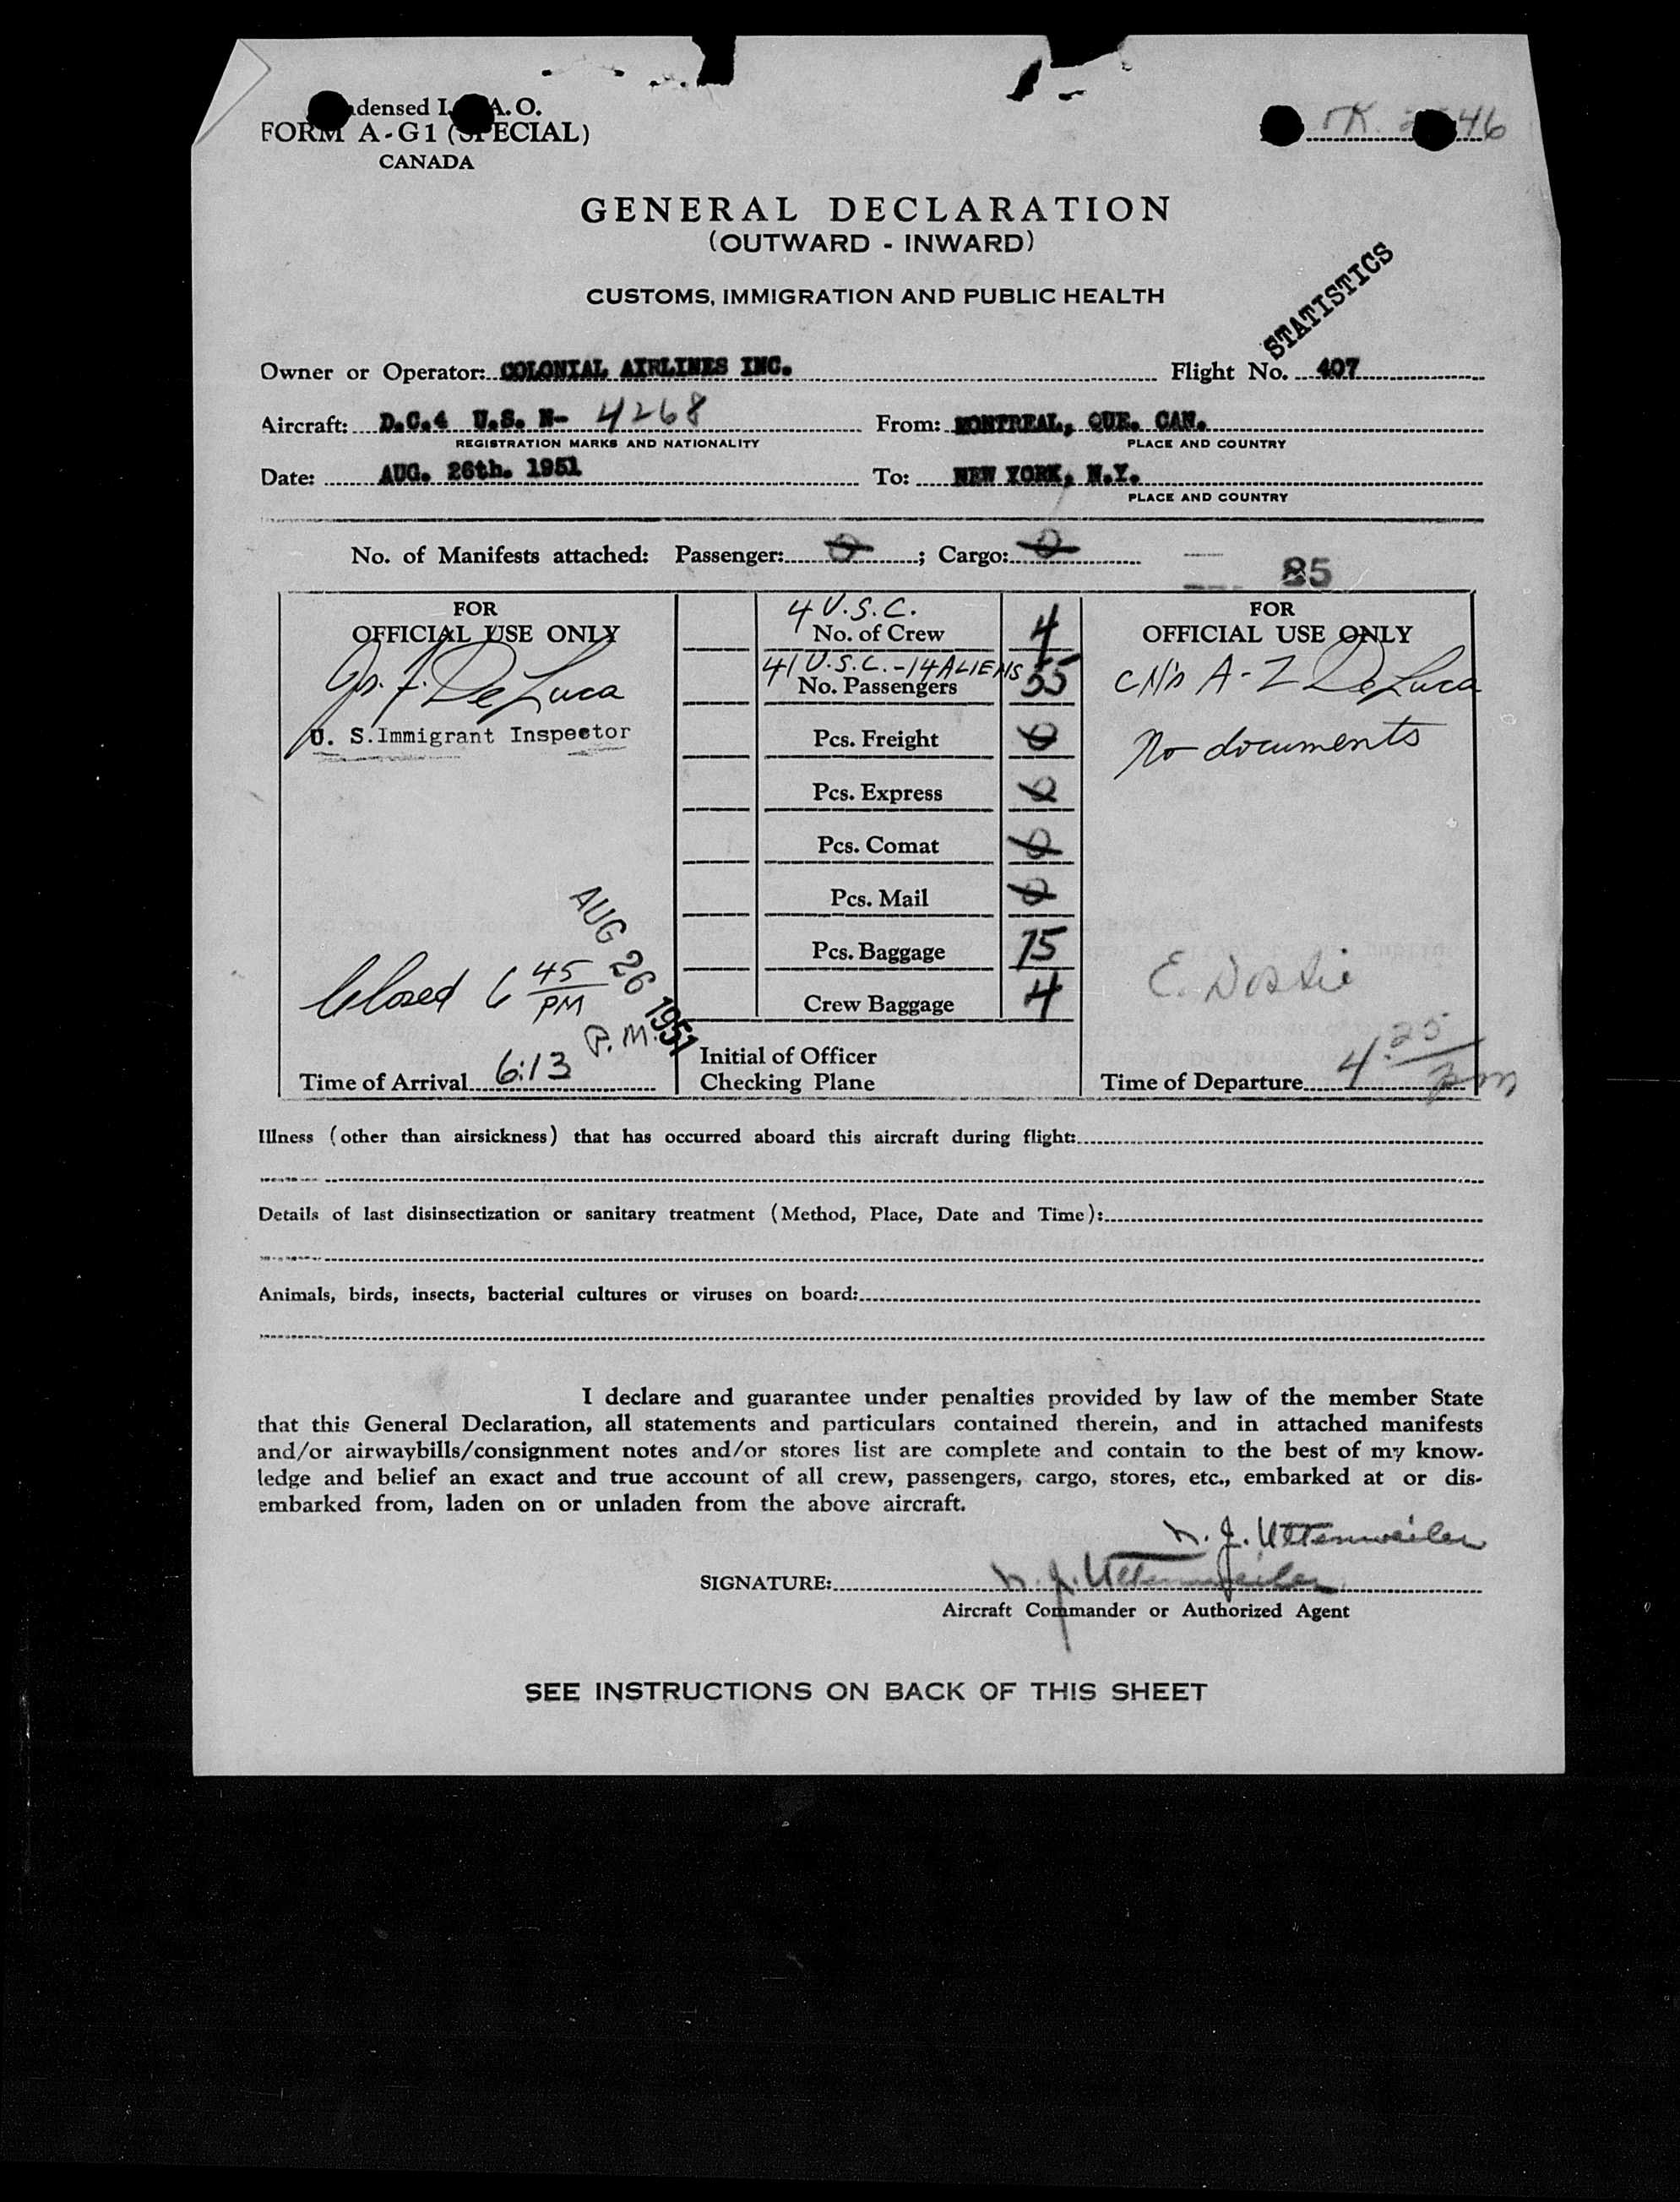 densed I. A. O.
FORM A-G1 (SPECIAL)
CANADA
46
GENERAL DECLARATION
(OUTWARD - INWARD)
CUSTOMS, IMMIGRATION AND PUBLIC HEALTH
STATISTICS
Owner or Operator: COLONIAL AIRLINES INC. Flight No. 407
Aircraft: D.C.4 U.S. N- 4268 From: MONTREAL, QUE. CAN.
REGISTRATION MARKS AND NATIONALITY PLACE AND COUNTRY
Date: AUG. 26th. 1951 To: NEW YORK, N.Y.
PLACE AND COUNTRY
No. of Manifests attached: Passenger: 0; Cargo: 0
85
FOR
OFFICIAL USE ONLY
De Luca
U. S. Immigrant Inspector
Closed 6 45 PM
AUG 26 1951
P.M.
Time of Arrival 6:13
4 U.S.C.
No. of Crew 4
41 U.S.C. - 14 ALIENS
No. Passengers 55
Pcs. Freight 0
Pcs. Express 0
Pcs. Comat 0
Pcs. Mail 0
Pcs. Baggage 75
Crew Baggage 4
Initial of Officer
Checking Plane
FOR
OFFICIAL USE ONLY
A-Z De Luca
No documents
Time of Departure 4:25 pm
Illness (other than airsickness) that has occurred aboard this aircraft during flight:
Details of last disinsectization or sanitary treatment (Method, Place, Date and Time):
Animals, birds, insects, bacterial cultures or viruses on board:
I declare and guarantee under penalties provided by law of the member State
that this General Declaration, all statements and particulars contained therein, and in attached manifests
and/or airwaybills/consignment notes and/or stores list are complete and contain to the best of my know-
ledge and belief an exact and true account of all crew, passengers, cargo, stores, etc., embarked at or dis-
embarked from, laden on or unladen from the above aircraft.
N. J. Uttenweiler
SIGNATURE: N. J. Uttenweiler
Aircraft Commander or Authorized Agent
SEE INSTRUCTIONS ON BACK OF THIS SHEET